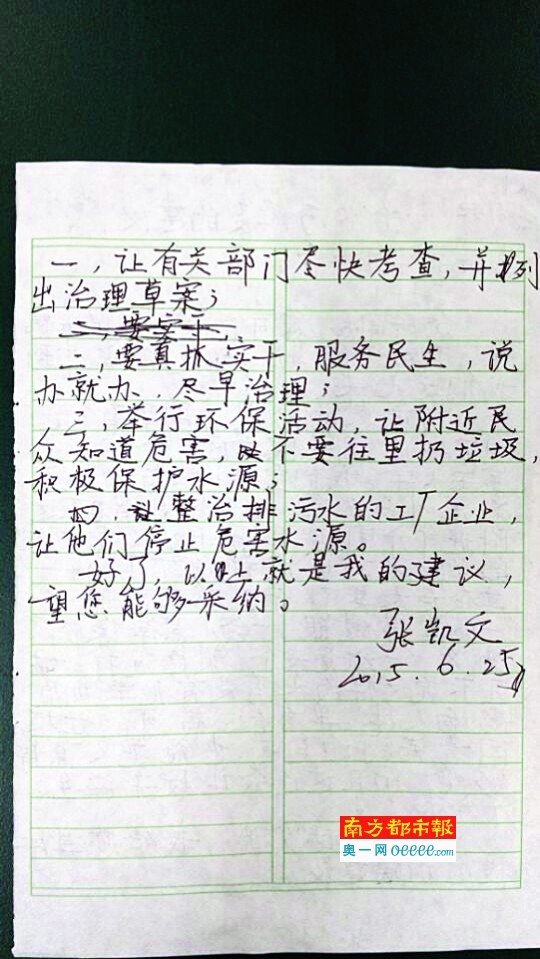 一，让有关部门尽快考查，并列
出治理草案；
二，要真抓实干，服务民生，说
办就办，尽早治理；
三，举行环保活动，让附近民
众知道危害，不要往里扔垃圾，
积极保护水源；
四，整治排污水的工厂企业，
让他们停止危害水源。
好了，以上就是我的建议，
望您能够采纳。
张凯文
2015.6.25
南方都市報
奥一网 oeeee.com